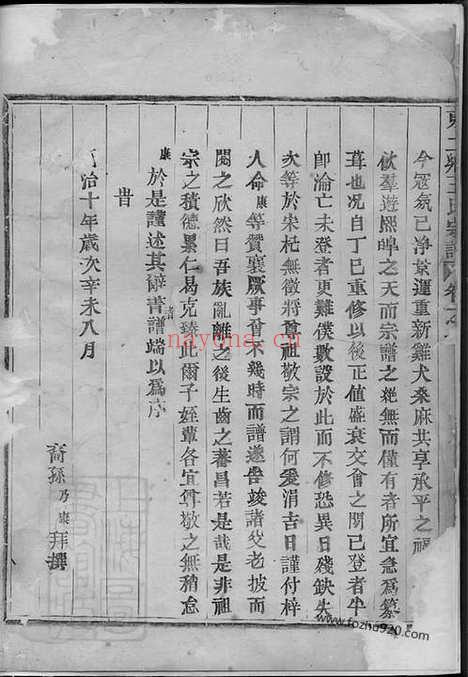 今寇氛已净景運重新雞犬桑麻共享承平之福
飲羣遊熈皥之天而宗譜之絕無而僅有者所宜急爲纂
葺也况自丁巳重修以後正值盛衰交會之関已登者半
即淪亡未登者更難僕數設於此而不修恐異日殘缺失
次等於宋杞無徵將尊祖敬宗之謂何爰涓吉日謹付梓
人命康等贊襄厥事曾不幾時而譜遂告竣諸父老披而
閱之欣然曰吾族亂離之後生齒之蕃昌若是哉是非祖
宗之積德累仁曷克臻此爾子姪輩各宜尊敬之無稍怠
康於是謹述其辭著譜端以爲序
諸
旹
治十年歲次辛未八月
裔孫乃康拜撰
王氏宗譜 卷之
nayona.cn
www.fozhu920.com